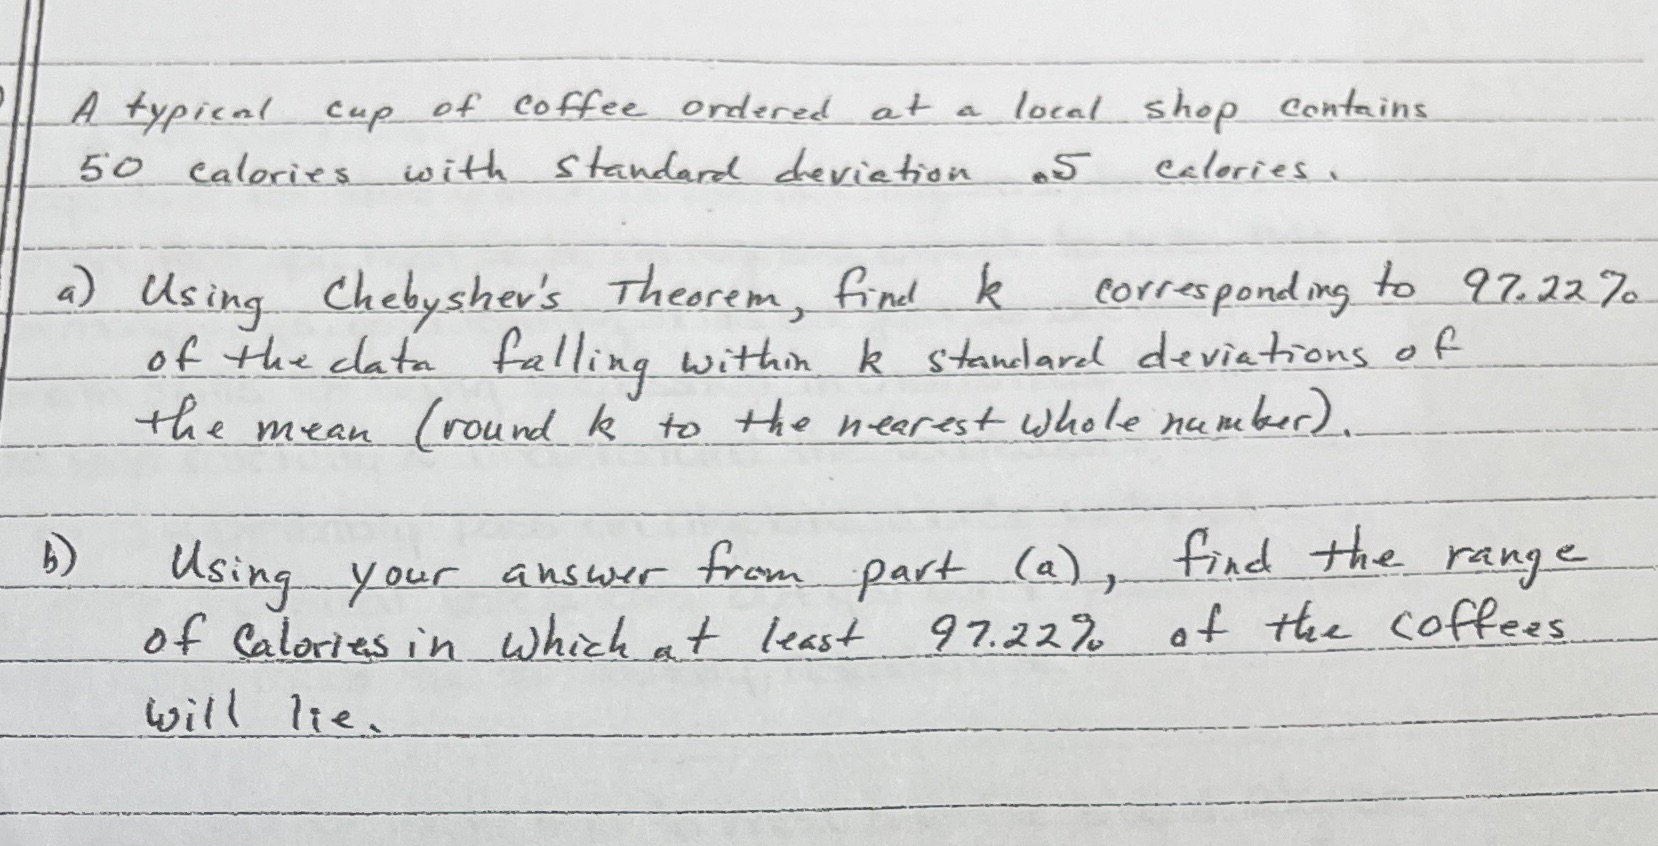 A typical cup of coffee ordered at a local shop contains
50 calories with standard deviation .5 calories.
a) Using Chebyshev's Theorem, find k corresponding to 97.22%
of the data falling within k standard deviations of
the mean (round k to the nearest whole number).
b) Using your answer from part (a), find the range
of Calories in which at least 97.22% of the coffees
will lie.